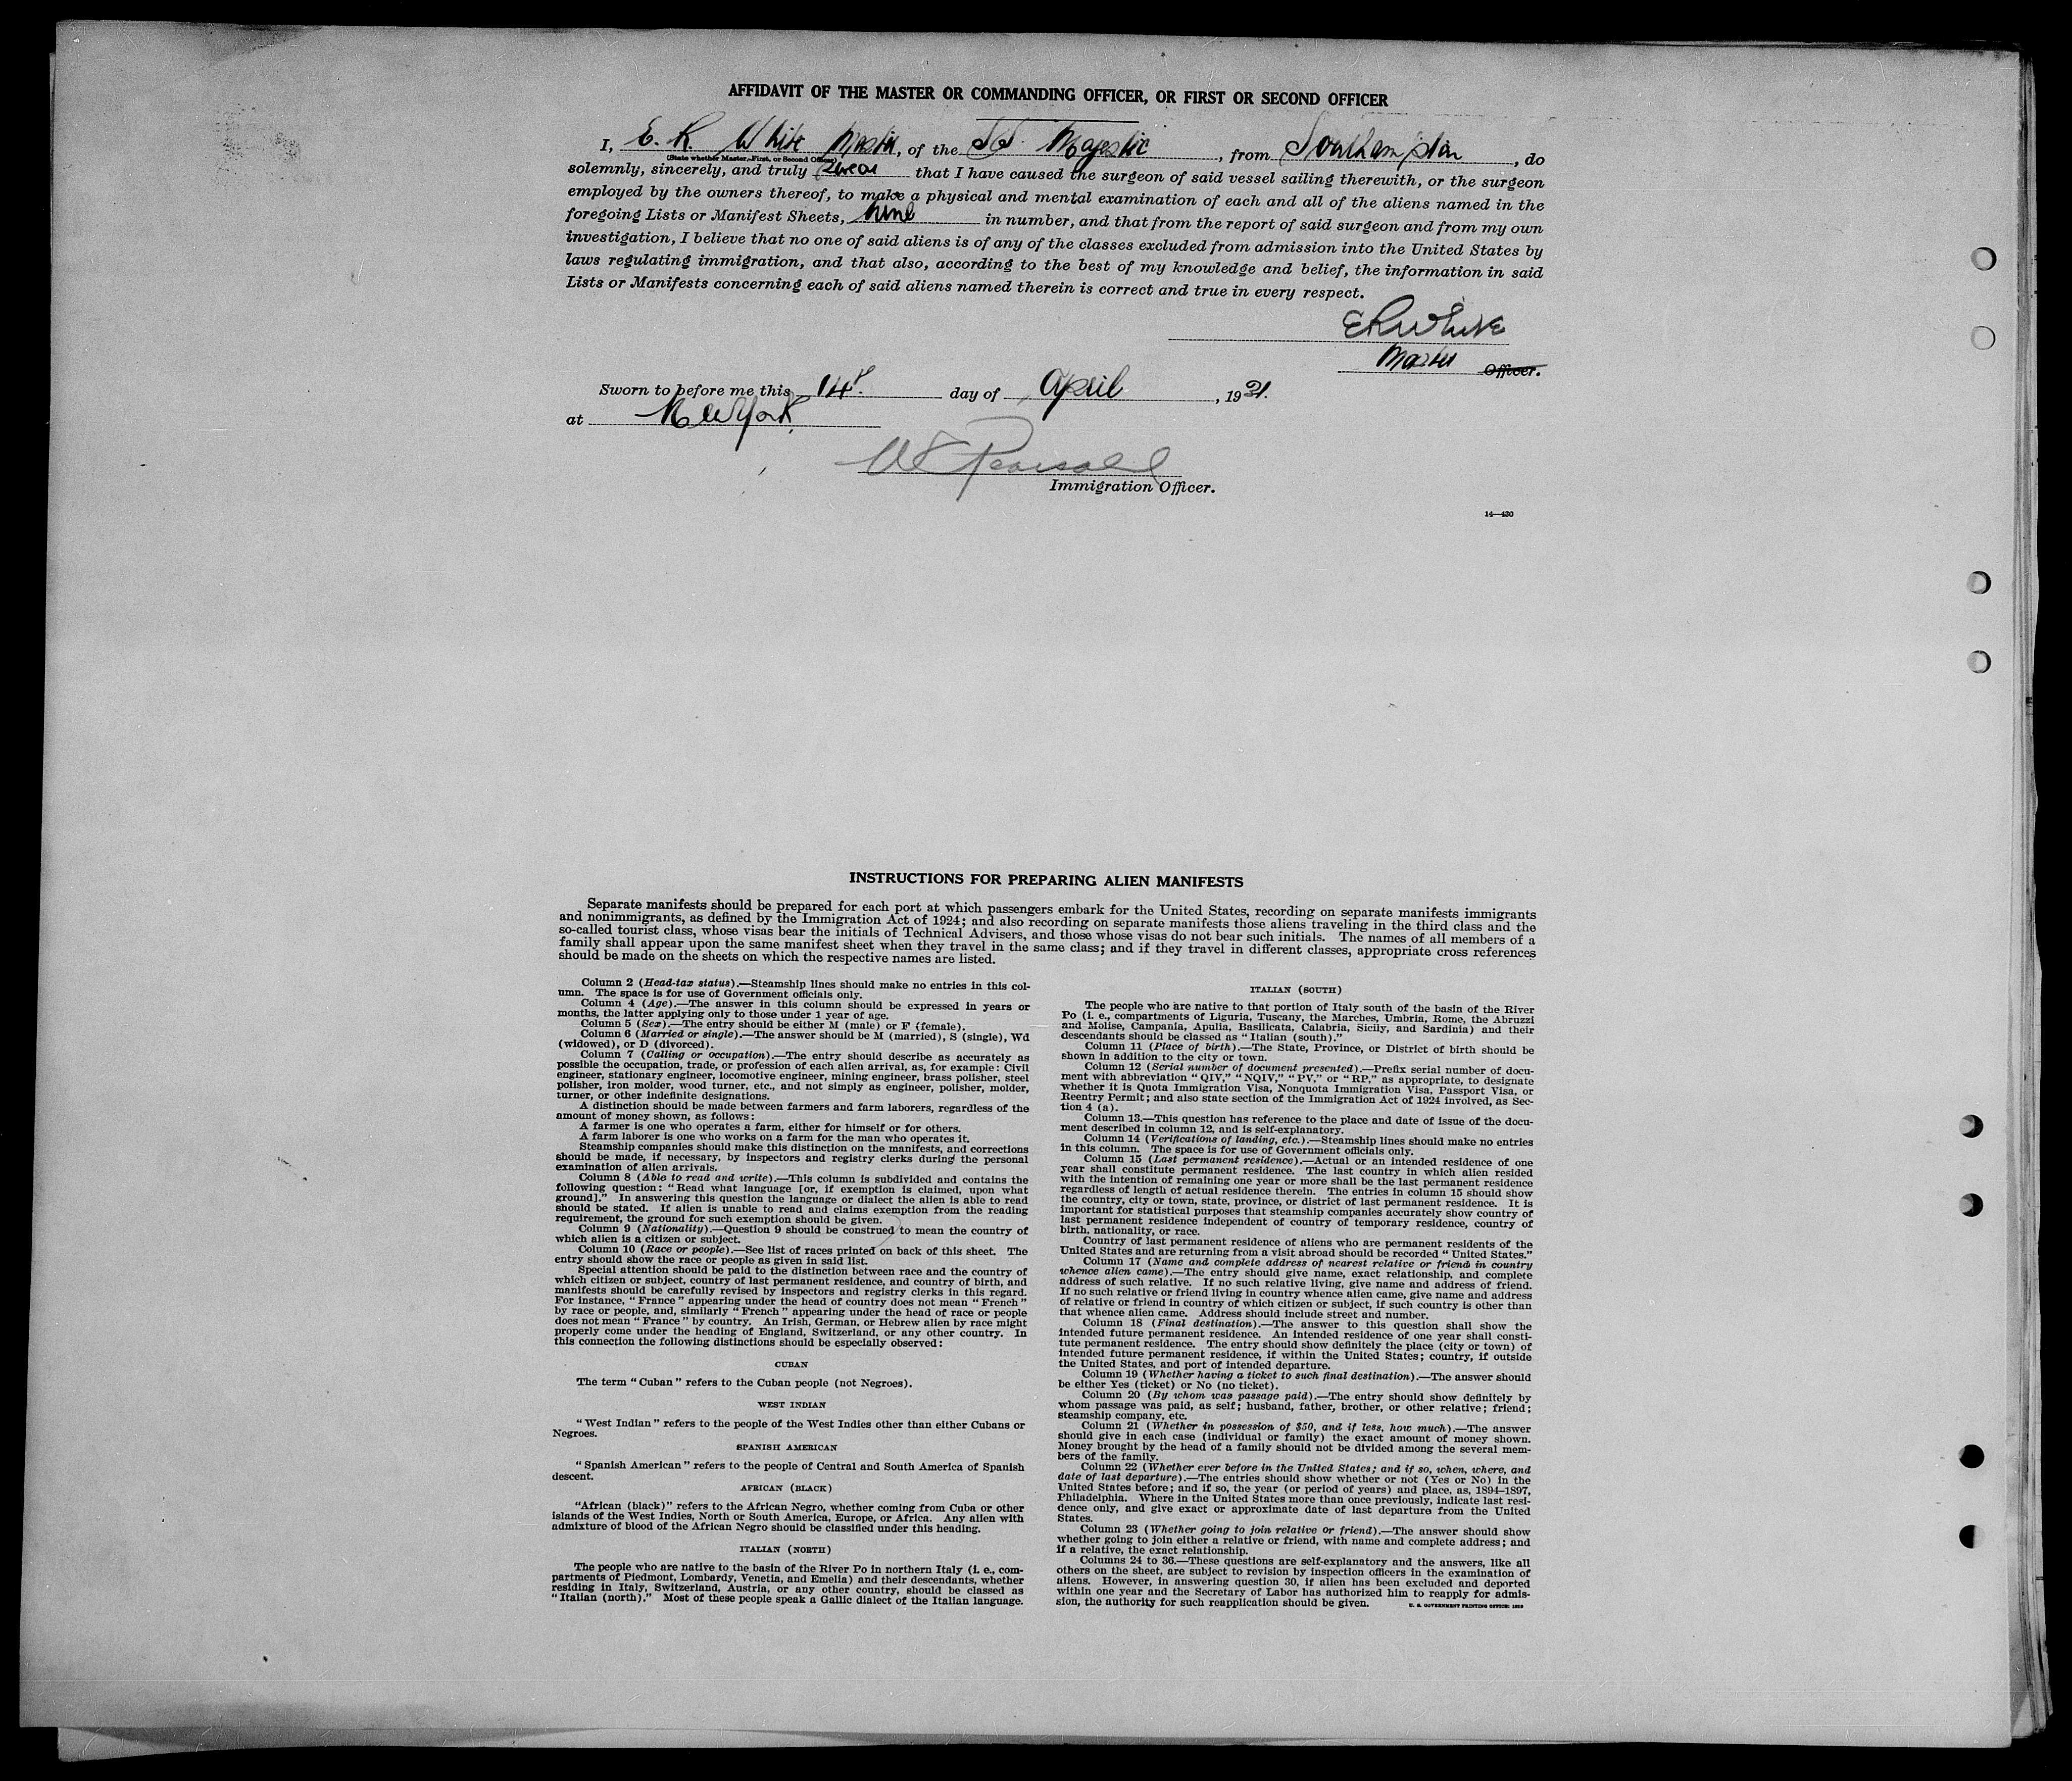 AFFIDAVIT OF THE MASTER OR COMMANDING OFFICER, OR FIRST OR SECOND OFFICER
I, E. R. White Master, of the SS. Majestic, from Southampton, do
(State whether Master, First, or Second Officer)
solemnly, sincerely, and truly swear that I have caused the surgeon of said vessel sailing therewith, or the surgeon
employed by the owners thereof, to make a physical and mental examination of each and all of the aliens named in the
foregoing Lists or Manifest Sheets, nine in number, and that from the report of said surgeon and from my own
investigation, I believe that no one of said aliens is of any of the classes excluded from admission into the United States by
laws regulating immigration, and that also, according to the best of my knowledge and belief, the information in said
Lists or Manifests concerning each of said aliens named therein is correct and true in every respect.
E R White
Master Officer.
Sworn to before me this 14th day of April, 1931.
at New York
Immigration Officer.
14—430
INSTRUCTIONS FOR PREPARING ALIEN MANIFESTS
Separate manifests should be prepared for each port at which passengers embark for the United States, recording on separate manifests immigrants
and nonimmigrants, as defined by the Immigration Act of 1924; and also recording on separate manifests those aliens traveling in the third class and the
so-called tourist class, whose visas bear the initials of Technical Advisers, and those whose visas do not bear such initials. The names of all members of a
family shall appear upon the same manifest sheet when they travel in the same class; and if they travel in different classes, appropriate cross references
should be made on the sheets on which the respective names are listed.
Column 2 (Head-tax status).—Steamship lines should make no entries in this col-
umn. The space is for use of Government officials only.
Column 4 (Age).—The answer in this column should be expressed in years or
months, the latter applying only to those under 1 year of age.
Column 5 (Sex).—The entry should be either M (male) or F (female).
Column 6 (Married or single).—The answer should be M (married), S (single), Wd
(widowed), or D (divorced).
Column 7 (Calling or occupation).—The entry should describe as accurately as
possible the occupation, trade, or profession of each alien arrival, as, for example: Civil
engineer, stationary engineer, locomotive engineer, mining engineer, brass polisher, steel
polisher, iron molder, wood turner, etc., and not simply as engineer, polisher, molder,
turner, or other indefinite designations.
A distinction should be made between farmers and farm laborers, regardless of the
amount of money shown, as follows:
A farmer is one who operates a farm, either for himself or for others.
A farm laborer is one who works on a farm for the man who operates it.
Steamship companies should make this distinction on the manifests, and corrections
should be made, if necessary, by inspectors and registry clerks during the personal
examination of alien arrivals.
Column 8 (Able to read and write).—This column is subdivided and contains the
following question: "Read what language [or, if exemption is claimed, upon what
ground]." In answering this question the language or dialect the alien is able to read
should be stated. If alien is unable to read and claims exemption from the reading
requirement, the ground for such exemption should be given.
Column 9 (Nationality).—Question 9 should be construed to mean the country of
which alien is a citizen or subject.
Column 10 (Race or people).—See list of races printed on back of this sheet. The
entry should show the race or people as given in said list.
Special attention should be paid to the distinction between race and the country of
which citizen or subject, country of last permanent residence, and country of birth, and
manifests should be carefully revised by inspectors and registry clerks in this regard.
For instance, "France" appearing under the head of country does not mean "French"
by race or people, and, similarly "French" appearing under the head of race or people
does not mean "France" by country. An Irish, German, or Hebrew alien by race might
properly come under the heading of England, Switzerland, or any other country. In
this connection the following distinctions should be especially observed:
CUBAN
The term "Cuban" refers to the Cuban people (not Negroes).
WEST INDIAN
"West Indian" refers to the people of the West Indies other than either Cubans or
Negroes.
SPANISH AMERICAN
"Spanish American" refers to the people of Central and South America of Spanish
descent.
AFRICAN (BLACK)
"African (black)" refers to the African Negro, whether coming from Cuba or other
islands of the West Indies, North or South America, Europe, or Africa. Any alien with
admixture of blood of the African Negro should be classified under this heading.
ITALIAN (NORTH)
The people who are native to the basin of the River Po in northern Italy (i. e., com-
partments of Piedmont, Lombardy, Venetia, and Emelia) and their descendants, whether
residing in Italy, Switzerland, Austria, or any other country, should be classed as
"Italian (north)." Most of these people speak a Gallic dialect of the Italian language.
ITALIAN (SOUTH)
The people who are native to that portion of Italy south of the basin of the River
Po (i. e., compartments of Liguria, Tuscany, the Marches, Umbria, Rome, the Abruzzi
and Molise, Campania, Apulia, Basilicata, Calabria, Sicily, and Sardinia) and their
descendants should be classed as "Italian (south)."
Column 11 (Place of birth).—The State, Province, or District of birth should be
shown in addition to the city or town.
Column 12 (Serial number of document presented).—Prefix serial number of docu-
ment with abbreviation "QIV," "NQIV," "PV," or "RP," as appropriate, to designate
whether it is Quota Immigration Visa, Nonquota Immigration Visa, Passport Visa, or
Reentry Permit; and also state section of the Immigration Act of 1924 involved, as Sec-
tion 4 (a).
Column 13.—This question has reference to the place and date of issue of the docu-
ment described in column 12, and is self-explanatory.
Column 14 (Verifications of landing, etc.).—Steamship lines should make no entries
in this column. The space is for use of Government officials only.
Column 15 (Last permanent residence).—Actual or an intended residence of one
year shall constitute permanent residence. The last country in which alien resided
with the intention of remaining one year or more shall be the last permanent residence
regardless of length of actual residence therein. The entries in column 15 should show
the country, city or town, state, province, or district of last permanent residence. It is
important for statistical purposes that steamship companies accurately show country of
last permanent residence independent of country of temporary residence, country of
birth, nationality, or race.
Country of last permanent residence of aliens who are permanent residents of the
United States and are returning from a visit abroad should be recorded "United States."
Column 17 (Name and complete address of nearest relative or friend in country
whence alien came).—The entry should give name, exact relationship, and complete
address of such relative. If no such relative living, give name and address of friend.
If no such relative or friend living in country whence alien came, give name and address
of relative or friend in country of which citizen or subject, if such country is other than
that whence alien came. Address should include street and number.
Column 18 (Final destination).—The answer to this question shall show the
intended future permanent residence. An intended residence of one year shall consti-
tute permanent residence. The entry should show definitely the place (city or town) of
intended future permanent residence, if within the United States; country, if outside
the United States, and port of intended departure.
Column 19 (Whether having a ticket to such final destination).—The answer should
be either Yes (ticket) or No (no ticket).
Column 20 (By whom was passage paid).—The entry should show definitely by
whom passage was paid, as self; husband, father, brother, or other relative; friend;
steamship company, etc.
Column 21 (Whether in possession of $50, and if less, how much).—The answer
should give in each case (individual or family) the exact amount of money shown.
Money brought by the head of a family should not be divided among the several mem-
bers of the family.
Column 22 (Whether ever before in the United States; and if so, when, where, and
date of last departure).—The entries should show whether or not (Yes or No) in the
United States before; and if so, the year (or period of years) and place, as, 1894–1897,
Philadelphia. Where in the United States more than once previously, indicate last resi-
dence only, and give exact or approximate date of last departure from the United
States.
Column 23 (Whether going to join relative or friend).—The answer should show
whether going to join either a relative or friend, with name and complete address; and
if a relative, the exact relationship.
Columns 24 to 36.—These questions are self-explanatory and the answers, like all
others on the sheet, are subject to revision by inspection officers in the examination of
aliens. However, in answering question 30, if alien has been excluded and deported
within one year and the Secretary of Labor has authorized him to reapply for admis-
sion, the authority for such reapplication should be given.
U. S. GOVERNMENT PRINTING OFFICE: